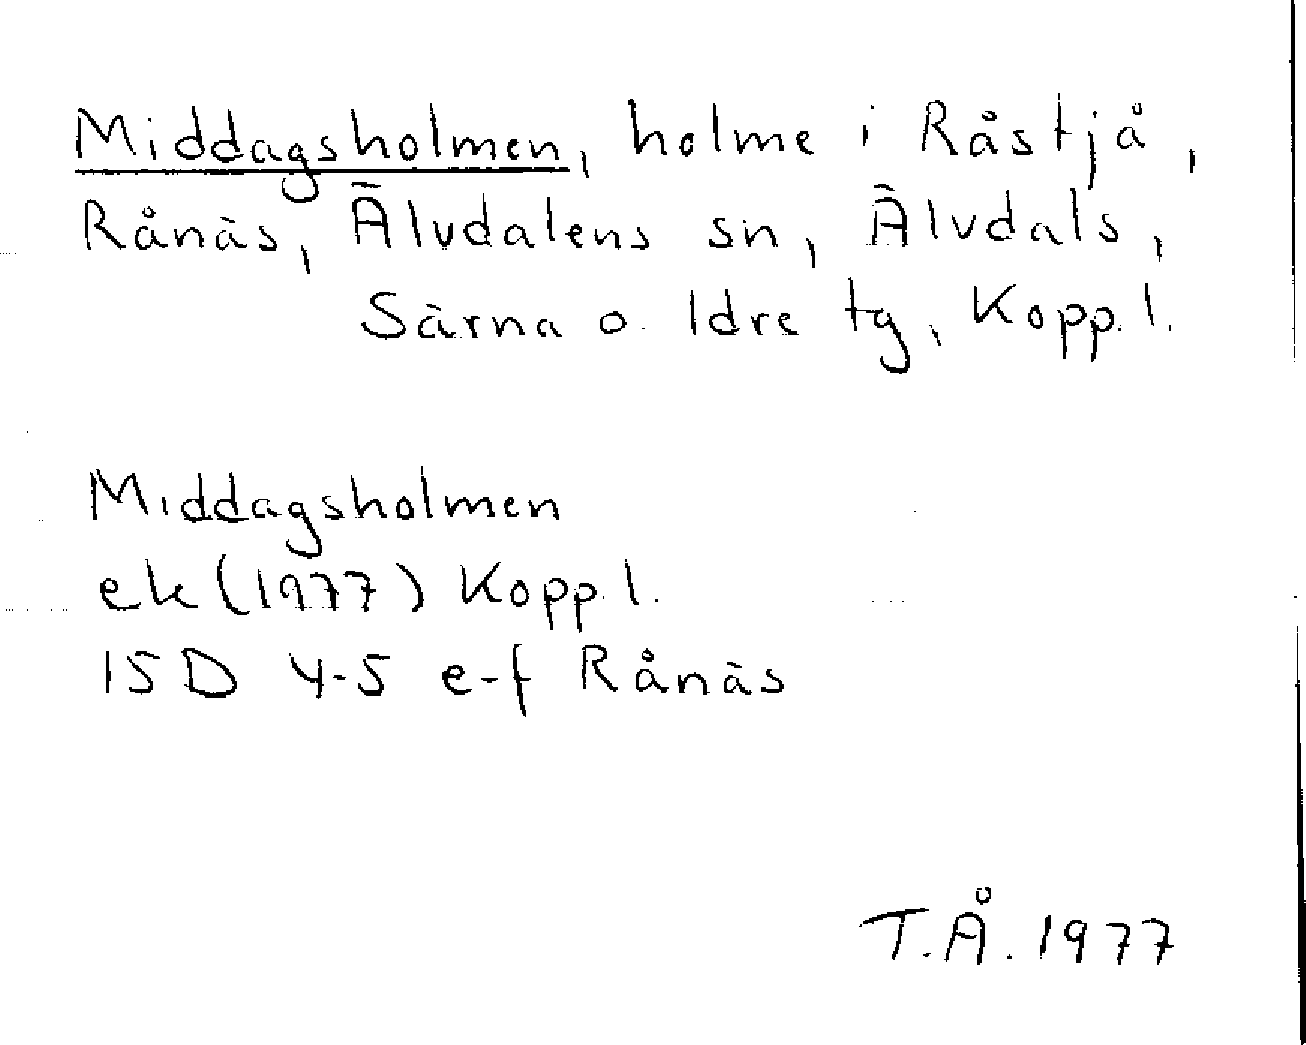 Middagsholmen, holme i Råstjå,
Rånäs, Älvdalens sn, Älvdals,
Särna o. Idre tg, Kopp. l.
Middagsholmen
ek (1977) Kopp. l.
15 D 4-5 e-f Rånäs
T.Å. 1977